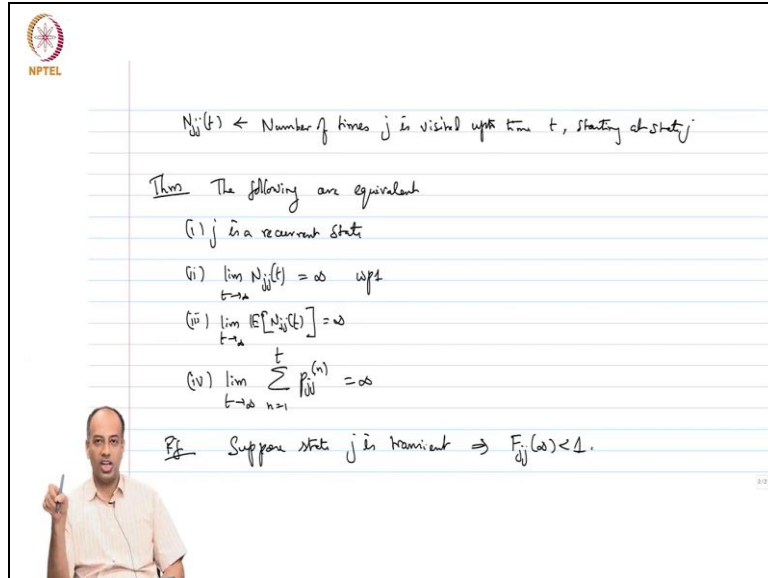 NPTEL
N_jj(t) ← Number of times j is visited upto time t, starting at state j
Thm The following are equivalent
(i) j is a recurrent state
(ii) lim_{t→∞} N_jj(t) = ∞ wp1
(iii) lim_{t→∞} E[N_jj(t)] = ∞
(iv) lim_{t→∞} ∑_{n=1}^{t} P_jj^{(n)} = ∞
Pf Suppose state j is transient ⇒ F_jj(∞) < 1.